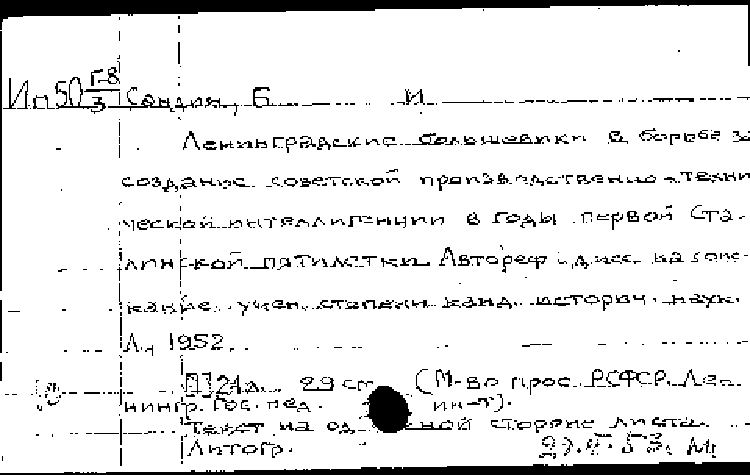 Ип50 Г-8/3 Сандин, Б И.
Ленинградские большевики в борьбе за
создание советской производственно-техни
ческой интеллигенции в годы первой Ста-
линской пятилетки. Автореф. дисс. на соис-
кание учен. степени канд. историч. наук.
Л., 1952.
21л. 29 см (М-во прос. РСФСР. Лен
нингр. Гос. пед. ин-т).
Текст на од ной стороне листа.
Литогр. 53.